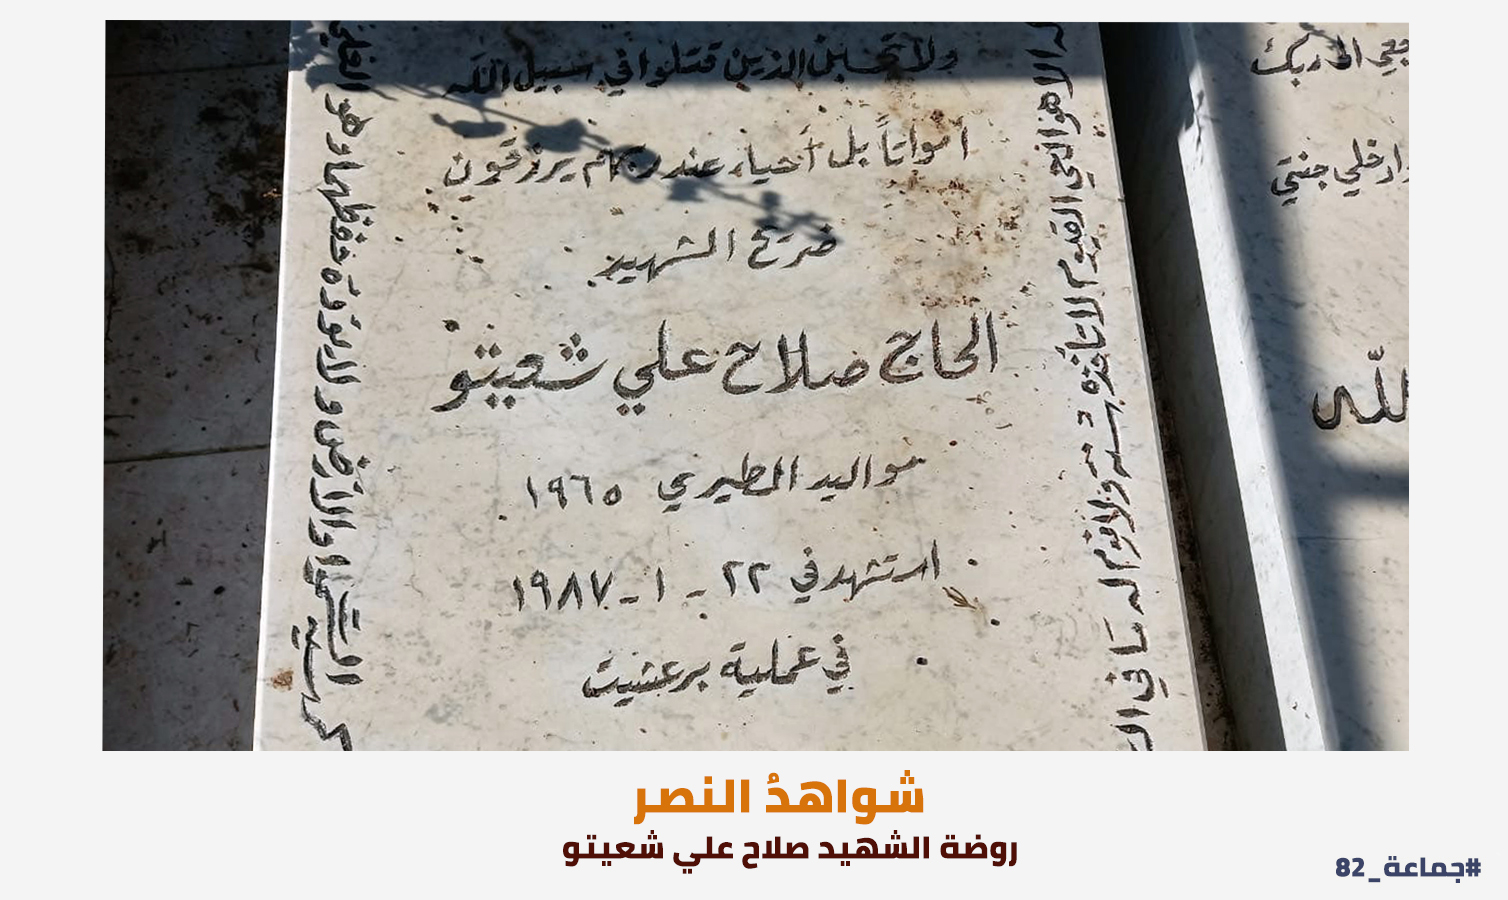 ولا تحسبن الذين قتلوا في سبيل الله
أمواتاً بل أحياء عند ربهم يرزقون
ضريح الشهيد
الحاج صلاح علي شعيتو
مواليد الطيري ١٩٦٥
استشهد في ٢٢ - ١ - ١٩٨٧
في عملية برعشيت
إلا هو الحي القيوم لا تأخذه سنة ولا نوم له ما في
كرسيه السموات والأرض ولا يؤده حفظهما وهو العلي
وادخلي جنتي
الله
شواهدُ النصر
روضة الشهيد صلاح علي شعيتو
#جماعة_82